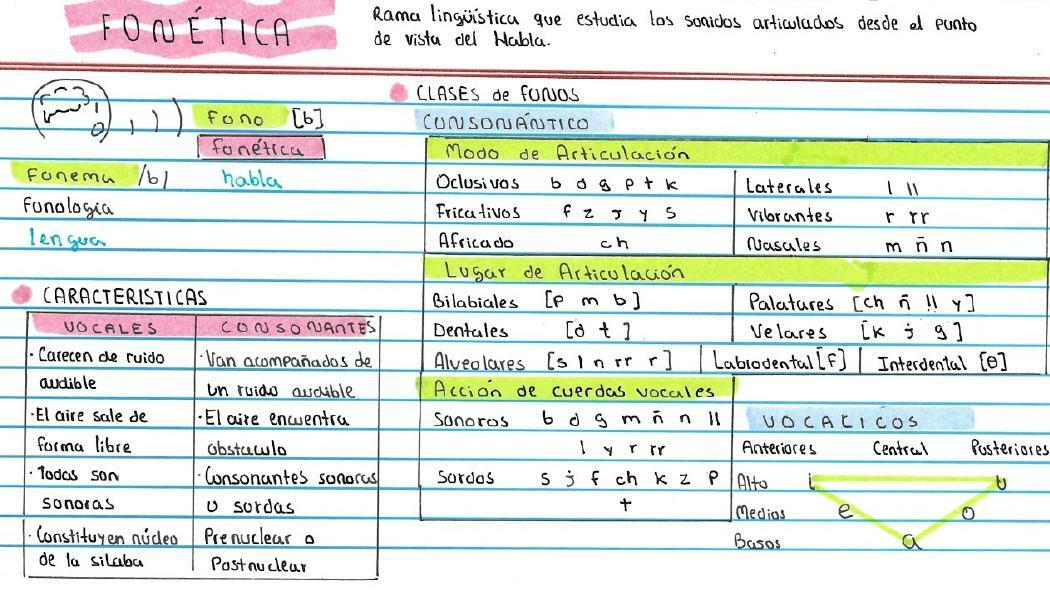 FONÉTICA
Rama lingüística que estudia los sonidos articulados desde el punto
de vista del Habla.
Fono [b]
fonética
Fonema /b/ habla
Fonología
lengua
CARACTERISTICAS
VOCALES CONSONANTES
· Carecen de ruido
audible
· Van acompañados de
un ruido audible
· El aire sale de
forma libre
· El aire encuentra
obstaculo
· Todas son
sonoras
· Consonantes sonoras
o sordas
· Constituyen núcleo
de la silaba
Prenuclear o
Postnuclear
CLASES de FONOS
CONSONÁNTICO
Modo de Articulación
Oclusivos b d g p t k
Laterales l ll
Fricativos f z j y s
Vibrantes r rr
Africado ch
Nasales m ñ n
Lugar de Articulación
Bilabiales [p m b]
Palatares [ch ñ ll y]
Dentales [d t]
Velares [k j g]
Alveolares [s l n rr r] Labiodental [F] Interdental [θ]
Acción de cuerdas vocales
Sonoros b d g m ñ n ll
l y r rr
Sordos s j f ch k z p
t
VOCALICOS
Anteriores Central Posteriores
Alto i u
Medios e o
Basos a